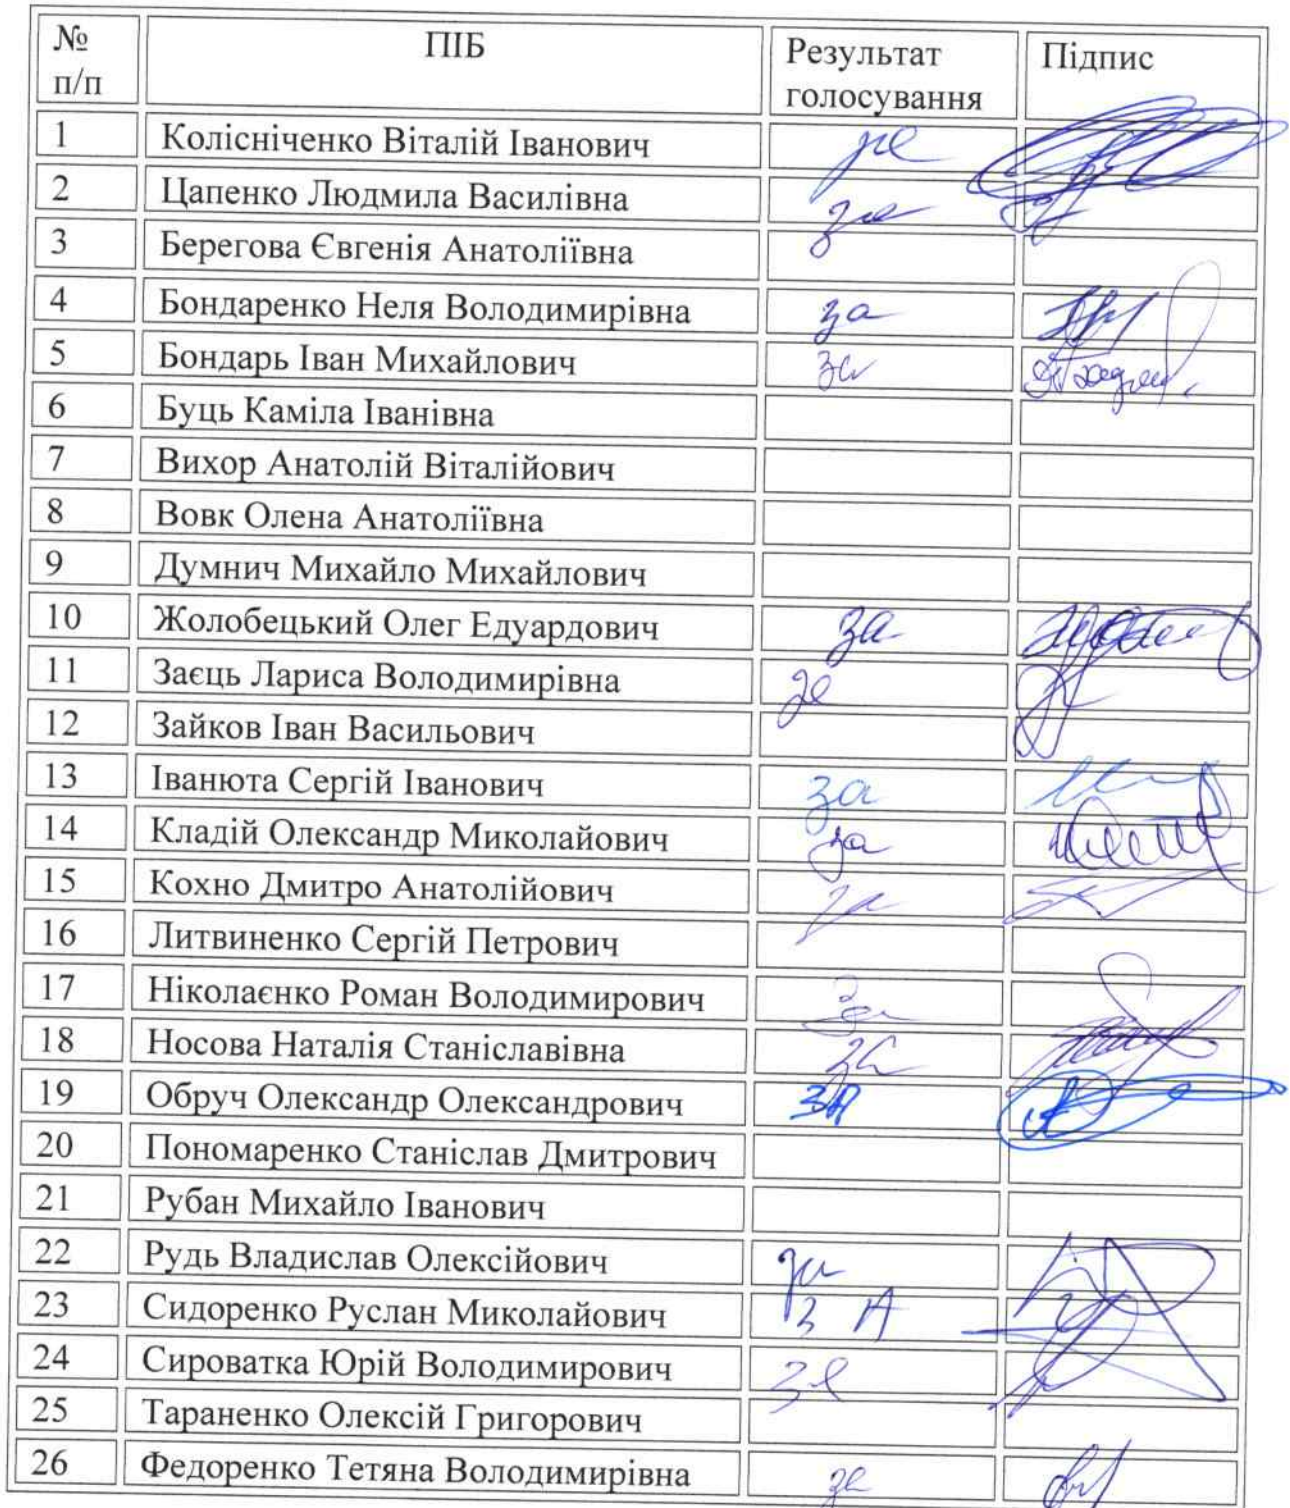 № п/п ПІБ Результат голосування Підпис
1 Колісніченко Віталій Іванович за
2 Цапенко Людмила Василівна за
3 Берегова Євгенія Анатоліївна
4 Бондаренко Неля Володимирівна за
5 Бондарь Іван Михайлович за
6 Буць Каміла Іванівна
7 Вихор Анатолій Віталійович
8 Вовк Олена Анатоліївна
9 Думнич Михайло Михайлович
10 Жолобецький Олег Едуардович за
11 Заєць Лариса Володимирівна за
12 Зайков Іван Васильович
13 Іванюта Сергій Іванович за
14 Кладій Олександр Миколайович за
15 Кохно Дмитро Анатолійович за
16 Литвиненко Сергій Петрович
17 Ніколаєнко Роман Володимирович за
18 Носова Наталія Станіславівна за
19 Обруч Олександр Олександрович ЗА
20 Пономаренко Станіслав Дмитрович
21 Рубан Михайло Іванович
22 Рудь Владислав Олексійович за
23 Сидоренко Руслан Миколайович З А
24 Сироватка Юрій Володимирович за
25 Тараненко Олексій Григорович
26 Федоренко Тетяна Володимирівна за